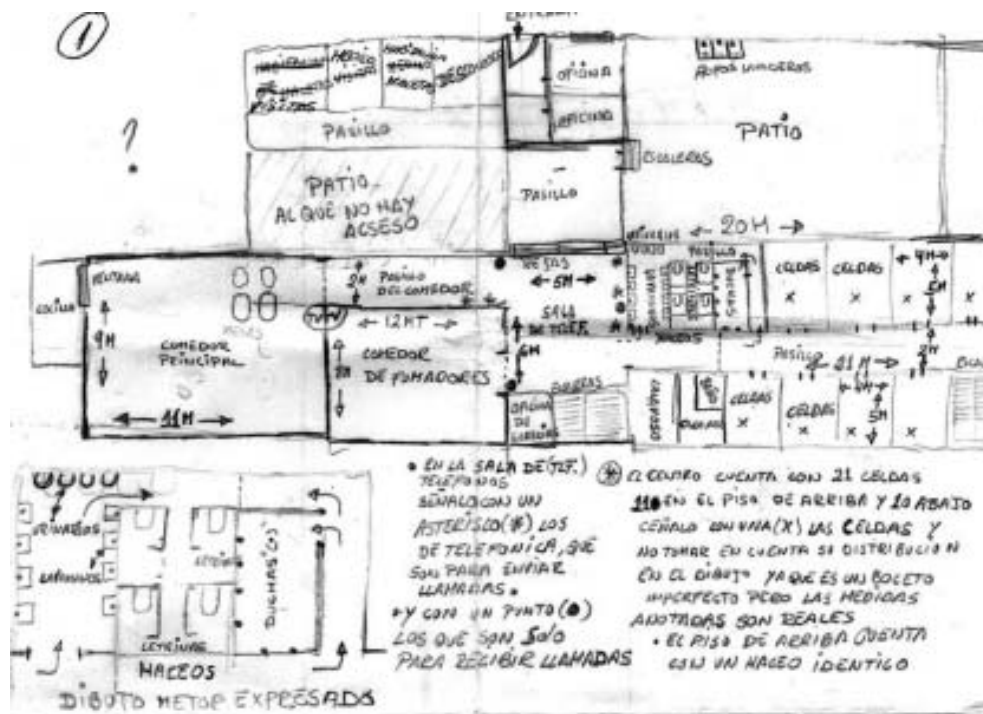 1
OFICINA
OFICINA
DESPACHOS
PASILLO
?
PATIO
AL QUE NO HAY
ACSESO
PASILLO
ESCALERAS
PATIO
← 20M →
COCINA
VENTANA
9M
MESAS
COMEDOR
PRINCIPAL
← 11M →
PASILLO
DEL COMEDOR
2M
← 12MT →
COMEDOR
DE FUMADORES
REJAS
← 5M →
SALA
DE TELF.
6M
PASILLO
CELDAS
CELDAS
5M
PASILLO
← 21M →
2M
CELDAS
CELDAS
5M
URINARIOS
LAVABOS
LETRINAS
LETRINAS
DUCHAS (6)
HACEOS
DIBUTO METOR EXPRESADO
• EN LA SALA DE (TLF.)
TELEFONOS
SEÑALO CON UN
ASTERISCO (*) LOS
DE TELEFONICA, QUE
SON PARA ENVIAR
LLAMADAS.
• Y CON UN PUNTO (●)
LOS QUE SON SOLO
PARA RECIBIR LLAMADAS
(*) EL CENTRO CUENTA CON 21 CELDAS
11 EN EL PISO DE ARRIBA Y 10 ABAJO
CEÑALO CON UNA (X) LAS CELDAS Y
NO TOMAR EN CUENTA SU DISTRIBUCION
EN EL DIBUJO YA QUE ES UN BOCETO
IMPERFECTO PERO LAS MEDIDAS
ANOTADAS SON REALES
• EL PISO DE ARRIBA CUENTA
CON UN HACEO IDENTICO